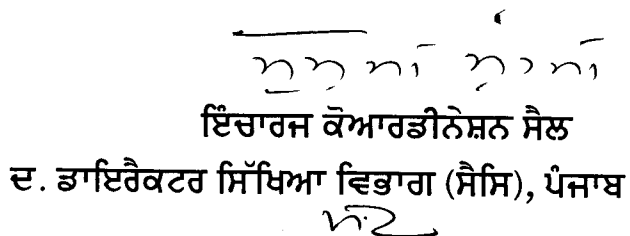 ਇੰਚਾਰਜ ਕੋਆਰਡੀਨੇਸ਼ਨ ਸੈਲ
ਦ. ਡਾਇਰੈਕਟਰ ਸਿੱਖਿਆ ਵਿਭਾਗ (ਸੈਸਿ), ਪੰਜਾਬ